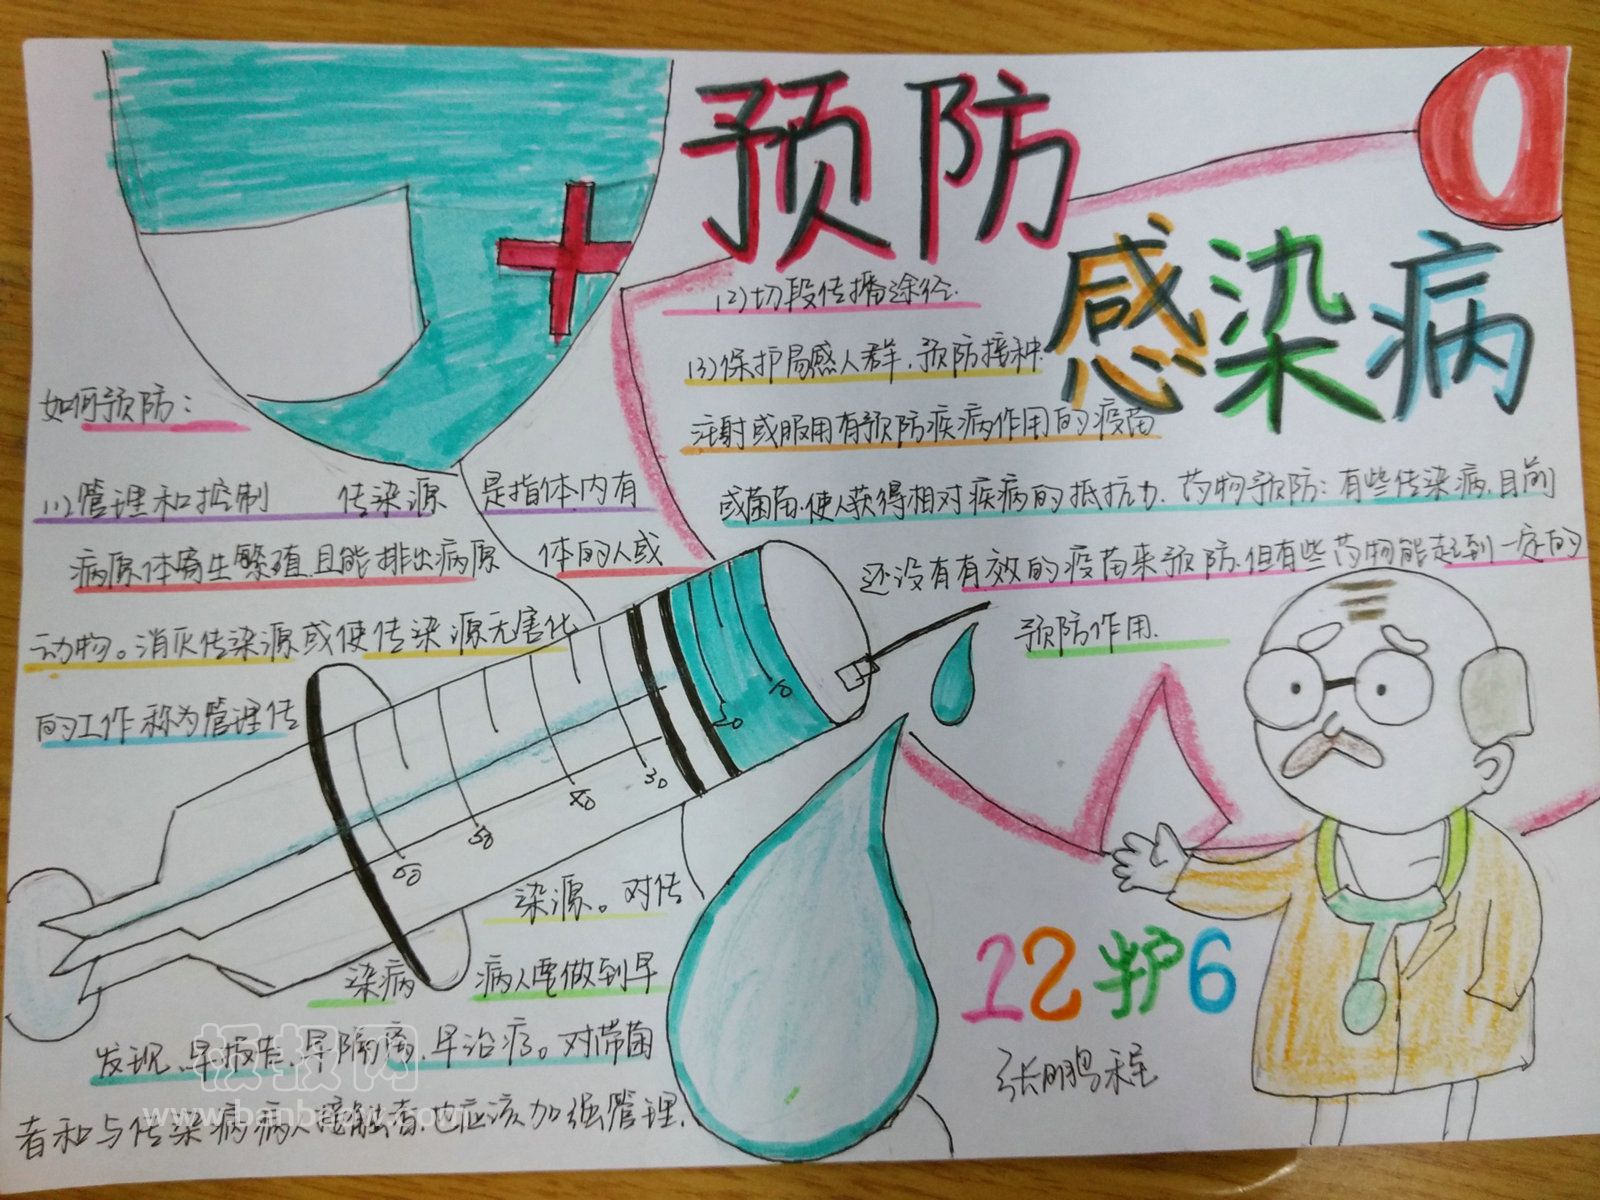 预防
感染病
如何预防：
(1)管理和控制 传染源 是指体内有
病原体寄生繁殖,且能排出病原 体的人或
动物。消灭传染源或使传染源无害化
的工作称为管理传
染源。对传
染病 病人要做到早
发现、早报告、早隔离、早治疗。对带菌
者和与传染病病人接触者,也应该加强管理.
(2)切段传播途径.
(3)保护易感人群.预防接种.
注射或服用有预防疾病作用的疫苗
或菌苗,使人获得相对疾病的抵抗力.药物预防：有些传染病,目前
还没有有效的疫苗来预防,但有些药物能起到一定的
预防作用.
10
20
30
40
50
60
12护6
张鹏程
板报网
www.banbaow.com